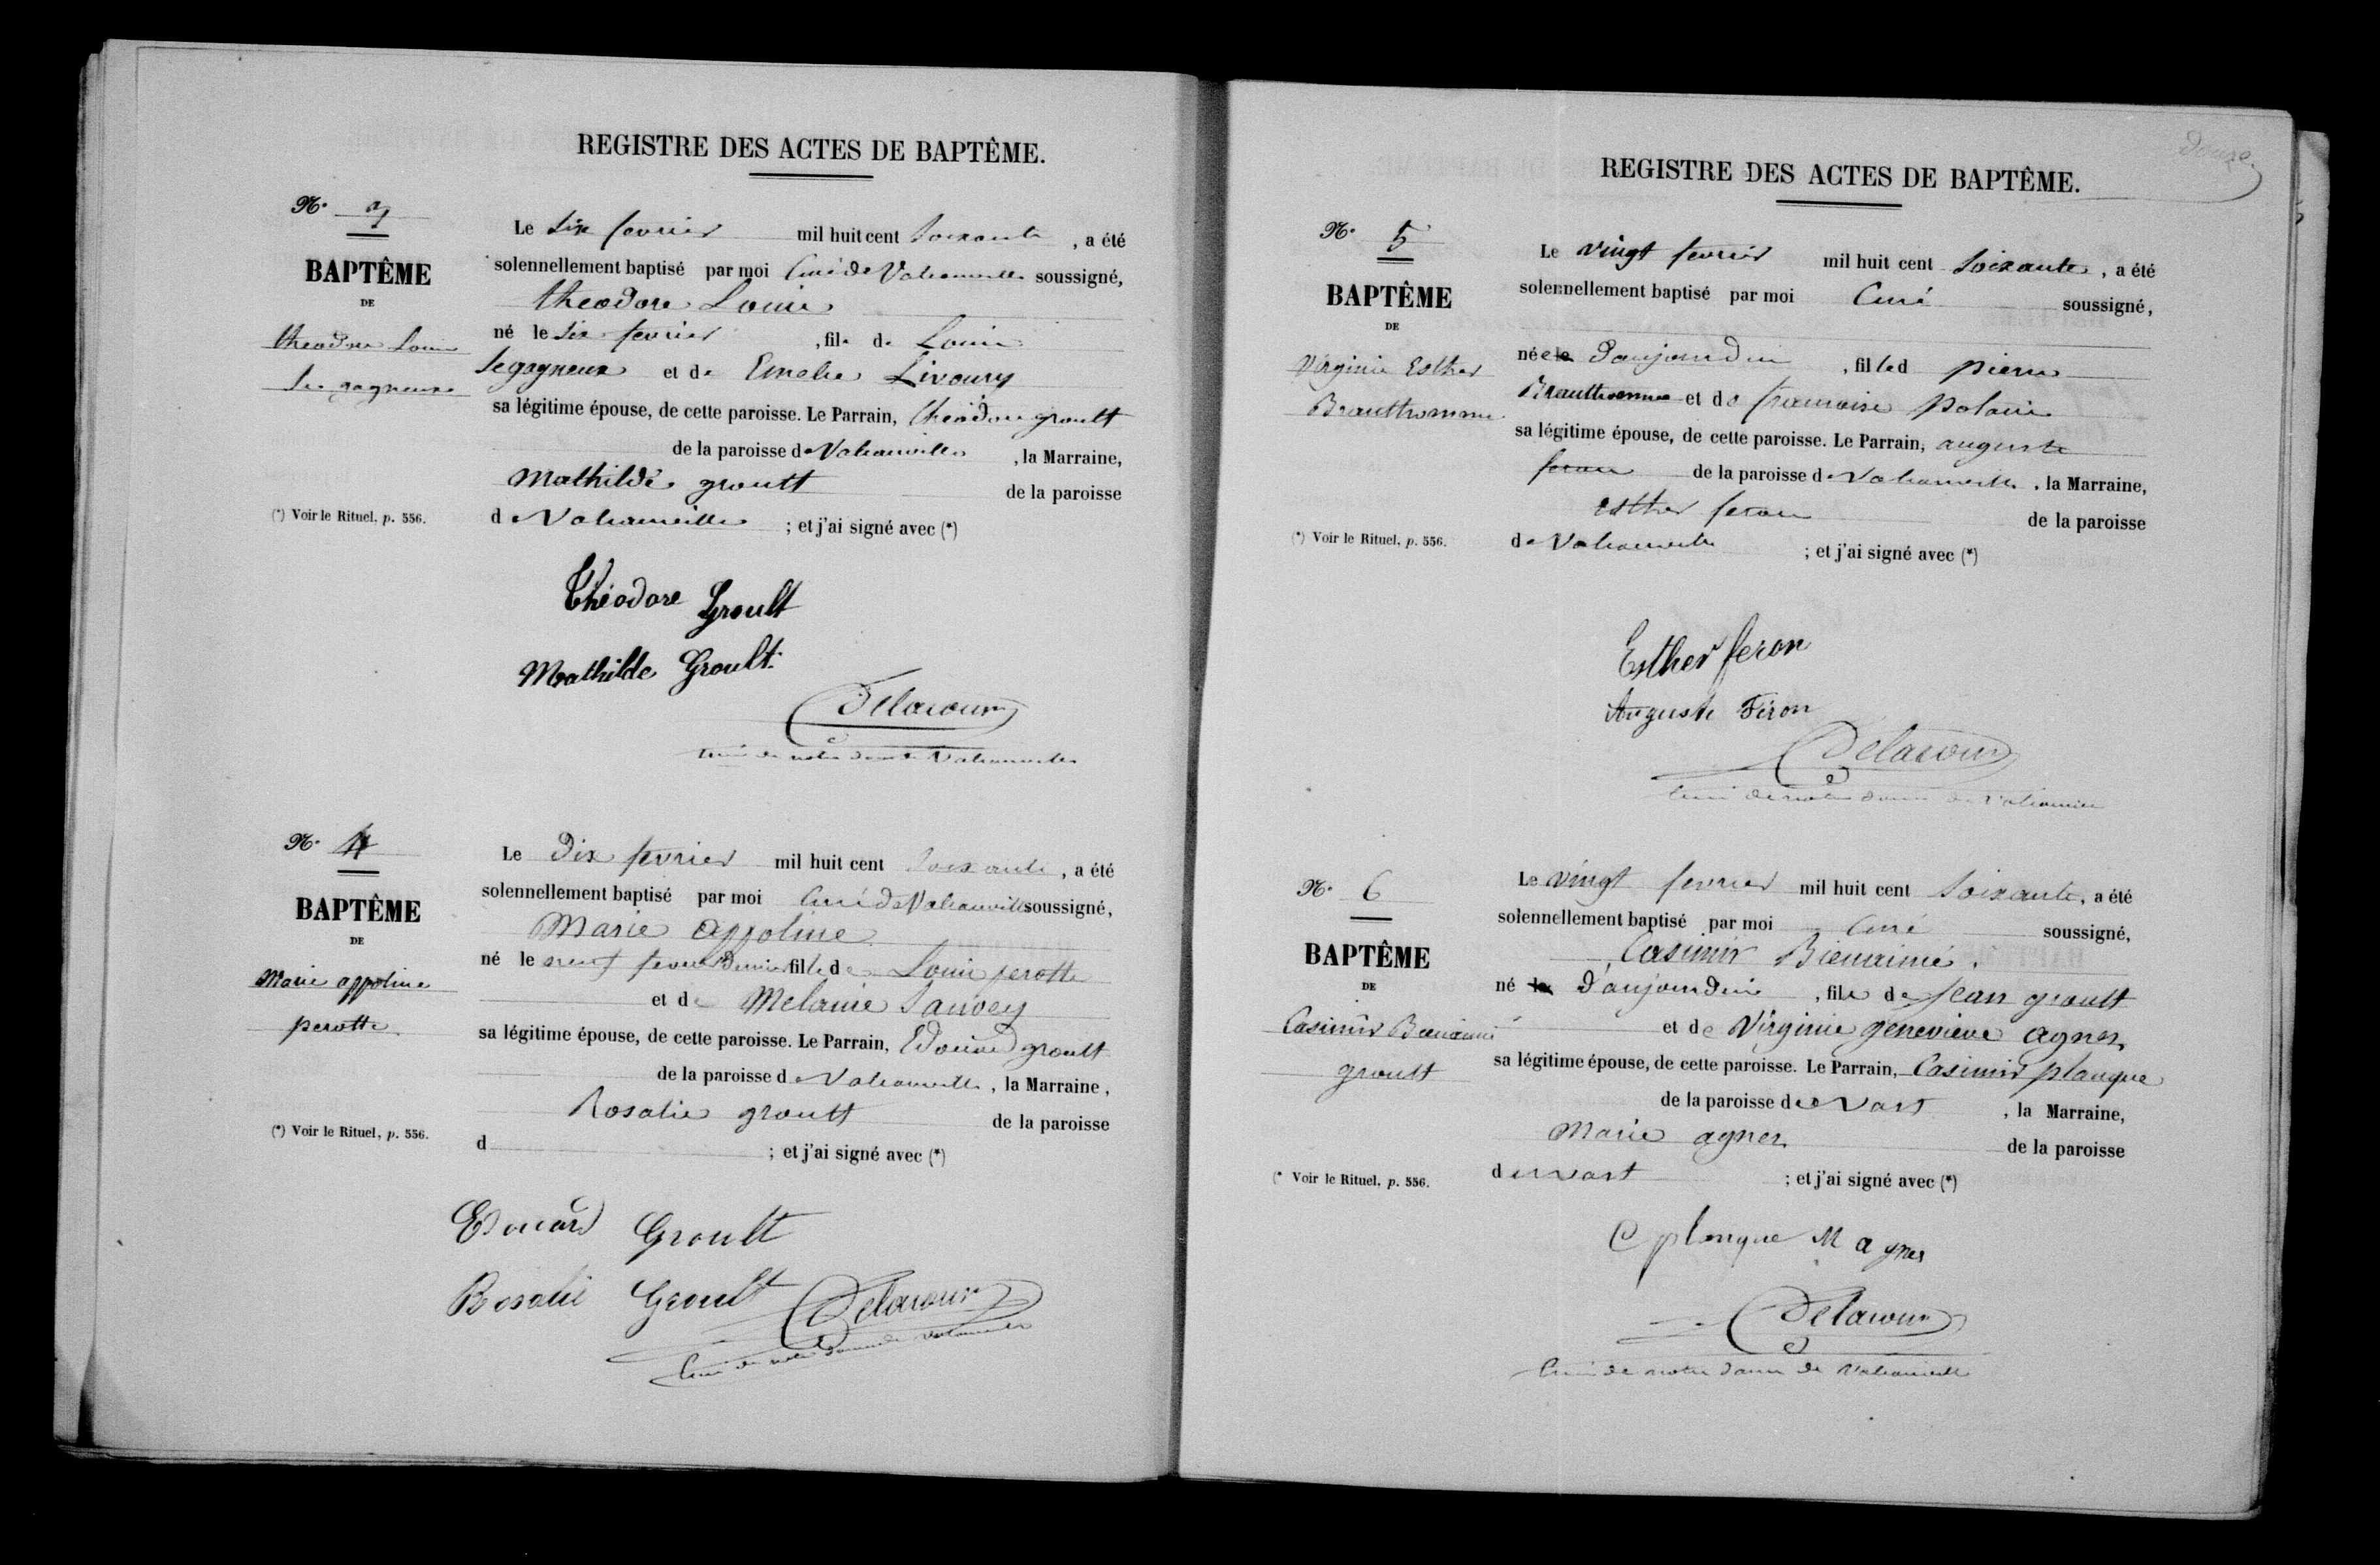 REGISTRE DES ACTES DE BAPTÊME.
N° 3
BAPTÊME
DE
theodore Louis
Le gagneux
(*) Voir le Rituel, p. 556.
Le six fevrier mil huit cent soixante, a été
solennellement baptisé par moi Curé de Valcanville soussigné,
theodore Louis
né le six fevrier, fils de Louis
Legagneux et de Emelie Livoury
sa légitime épouse, de cette paroisse. Le Parrain, théodore groult
de la paroisse de Valcanville, la Marraine,
Mathilde groult de la paroisse
de Valcanville ; et j'ai signé avec (*)
Théodore Groult
Mathilde Groult
Delacour
curé de notre dame de Valcanville
N° 4
BAPTÊME
DE
Marie appoline
perotte
(*) Voir le Rituel, p. 556.
Le Dix fevrier mil huit cent soixante, a été
solennellement baptisé par moi Curé de Valcanville soussigné,
Marie appoline
né le neuf fevrier dernier fille de Louis perotte
et de Melanie Sauvey
sa légitime épouse, de cette paroisse. Le Parrain, Edouard groult
de la paroisse de Valcanville, la Marraine,
Rosalie groult de la paroisse
d ; et j'ai signé avec (*)
Edouard Groult
Rosalie Groult Delacour
Curé de notre dame de Valcanville
Douze
REGISTRE DES ACTES DE BAPTÊME.
N° 5
BAPTÊME
DE
Virginie Esther
Beauthomme
(*) Voir le Rituel, p. 556.
Le vingt fevrier mil huit cent soixante, a été
solennellement baptisé par moi Curé soussigné,
née le D'aujourdui, fille d pierre
Brauthomme et de francoise
sa légitime épouse, de cette paroisse. Le Parrain, auguste
feron de la paroisse de Valcanville, la Marraine,
esther feron de la paroisse
de Valcanville ; et j'ai signé avec (*)
Esther feron
Auguste Féron
Delacour
Curé de notre dame de Valcanville
N° 6
BAPTÊME
DE
Casimir Bienaimé
groult
(* Voir le Rituel, p. 556.
Le vingt fevrier mil huit cent soixante, a été
solennellement baptisé par moi Curé soussigné,
Casimir Bienaimé.
né le D'aujourdui, fils de Jean groult
et de Virginie genevieve agnes
sa légitime épouse, de cette paroisse. Le Parrain, Casimir planque
de la paroisse de Vast, la Marraine,
Marie agnes de la paroisse
du vast ; et j'ai signé avec (*)
C planque M agnes
Delacour
Curé de notre dame de Valcanville